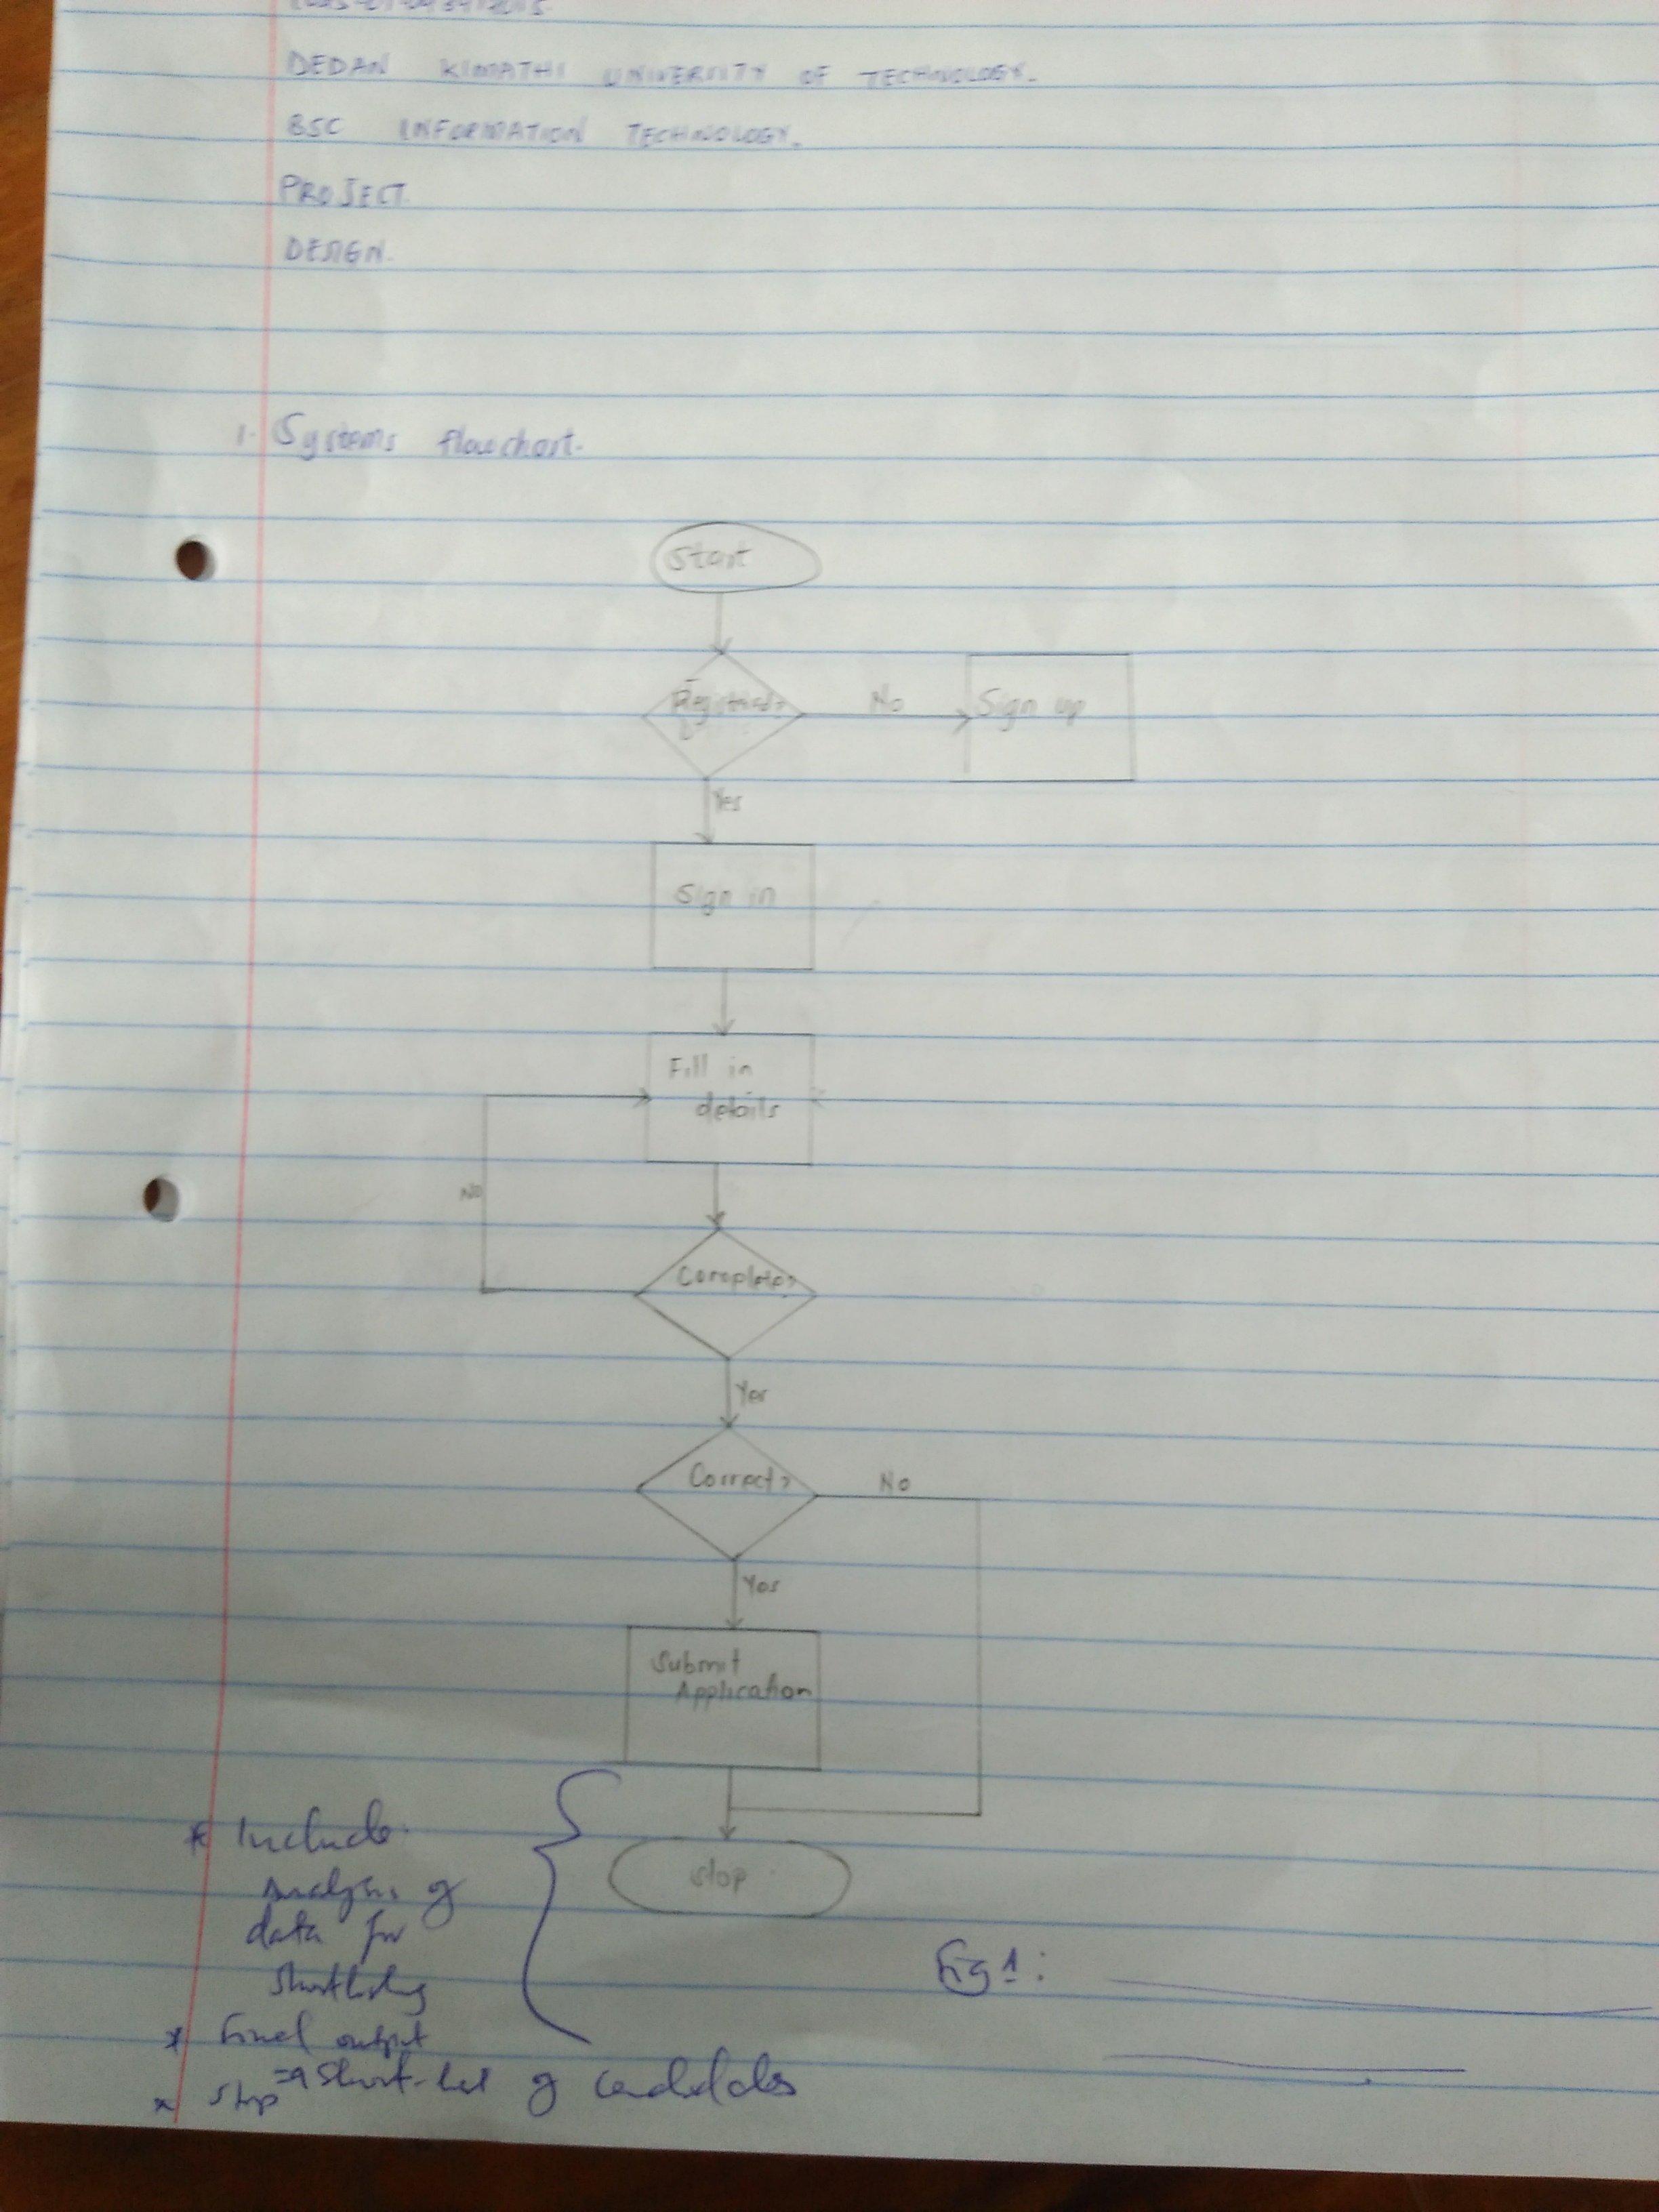 DEDAN KIMATHI UNIVERSITY OF TECHNOLOGY.
BSC INFORMATION TECHNOLOGY.
PROJECT.
DESIGN.
1. Systems flowchart.
Start
Registered?
No
Sign up
Yes
Sign in
Fill in
details
No
Complete?
Yes
Correct?
No
Yes
Submit
Application
Stop
* Include
Analysis of
data for
Shortlisting
* Final output
=> Short-list of candidates
* Stop
Fig 1: